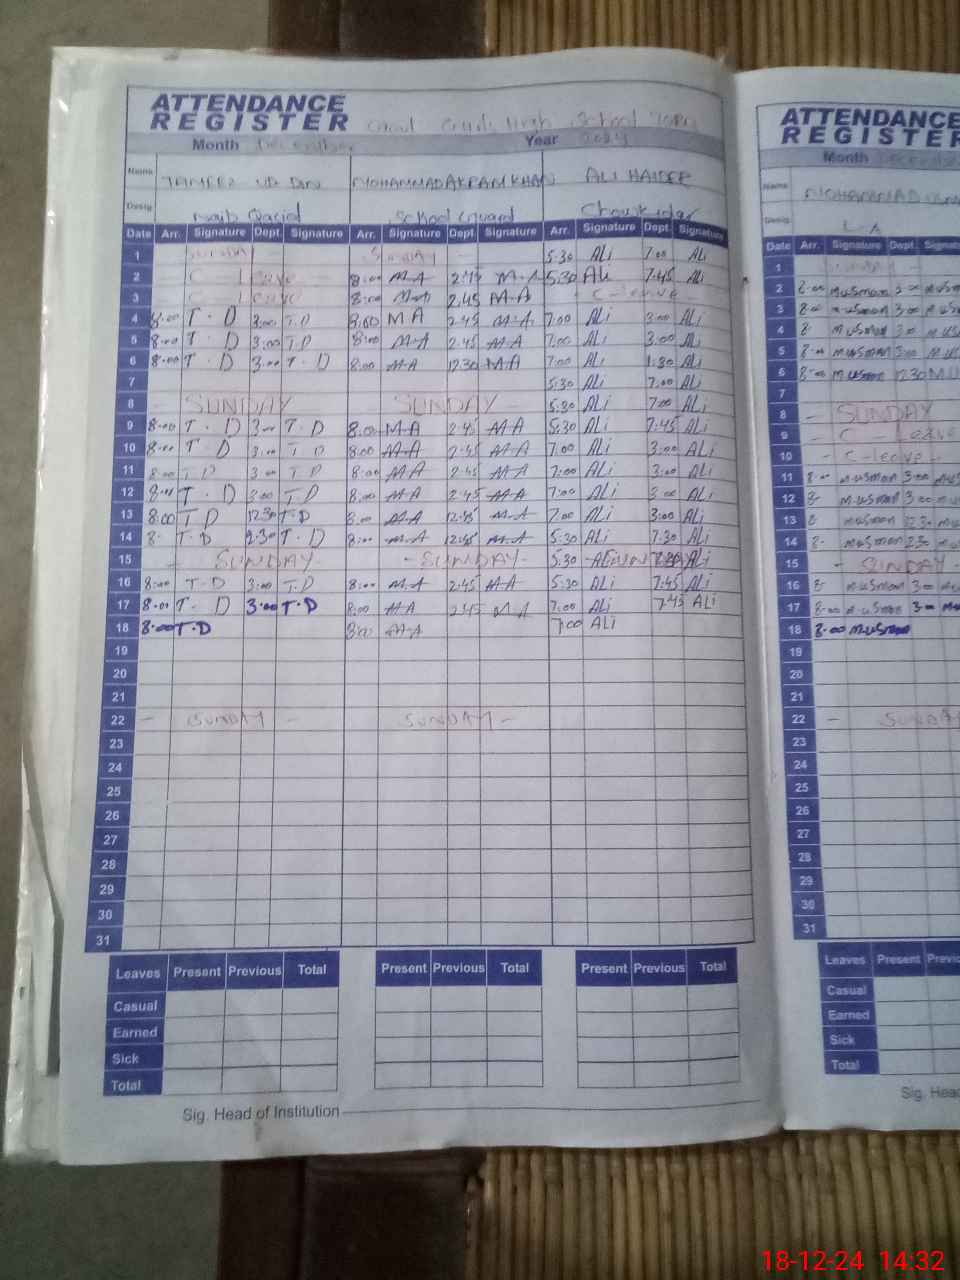 ATTENDANCE
REGISTER Govt Girls High School
Month December Year 2024
Name TAMEEZ UD DIN MOHAMMAD AKRAM KHAN ALI HAIDER
Desig. Naib Qasid School Guard Chowkidar
Date Arr. Signature Dept. Signature Arr. Signature Dept. Signature Arr. Signature Dept. Signature
1 SUNDAY - SUNDAY - 5:30 ALi 7:00 ALi
2 C - Leave 8:00 M-A 2:45 M-A 5:30 ALi 7:45 ALi
3 C - Leave 8:00 M-A 2:45 M-A - C-leave -
4 8:00 T-D 3:00 T.D 8:00 MA 2:45 M-A 7:00 ALi 3:00 ALi
5 8:00 T-D 3:00 T-D 8:00 M-A 2:45 M-A 7:00 ALi 3:00 ALi
6 8:00 T-D 3:00 T-D 8:00 M-A 12:30 M-A 7:00 ALi 1:30 ALi
7 5:30 ALi 7:00 ALi
8 - SUNDAY - SUNDAY - 5:30 ALi 7:00 ALi
9 8:00 T-D 3:00 T-D 8:00 M-A 2:45 M-A 5:30 ALi 7:45 ALi
10 8:00 T-D 3:00 T-D 8:00 M-A 2:45 M-A 7:00 ALi 3:00 ALi
11 8:00 T-D 3:00 T-D 8:00 M-A 2:45 M-A 7:00 ALi 3:00 ALi
12 8:00 T-D 3:00 T-D 8:00 M-A 2:45 M-A 7:00 ALi 3:00 ALi
13 8:00 T-D 12:30 T-D 8:00 M-A 12:45 M-A 7:00 ALi 3:00 ALi
14 8- T-D 2:30 T-D 8:00 M-A 12:45 M-A 5:30 ALi 7:30 ALi
15 - SUNDAY - SUNDAY - 5:30 ALi
16 8:00 T-D 3:00 T-D 8:00 M-A 2:45 M-A 5:30 ALi 7:45 ALi
17 8:00 T-D 3:00 T-D 8:00 M-A 2:45 M-A 7:00 ALi 7:45 ALi
18 8:00 T-D 8:00 M-A 7:00 ALi
19
20
21
22 - SUNDAY - SUNDAY -
23
24
25
26
27
28
29
30
31
Leaves Present Previous Total Present Previous Total Present Previous Total
Casual
Earned
Sick
Total
Sig. Head of Institution
ATTENDANCE
REGISTER
Month December
Name MOHAMMAD
Desig. L-A
Date Arr. Signature Dept.
1 SUNDAY -
2 8:00 M.USman
3 8:00 M.USman 3:00 M.US
4 8 M.USman 3:0 M.US
5 8:00 M.USman 3:00 M.US
6 8:00 M.USman 12:30 M.U
7
8 - SUNDAY
9 - C - Leave
10 - C-leave -
11 8:00 M.USman 3:00
12 8- M.USman 3:00 M.US
13 8 M.USman 12:30
14 8- M.USman
15 - SUNDAY -
16 8 M.USman 3:00
17 8:00 M.USman 3:00
18 8:00 M.USman
19
20
21
22 - SUNDAY
23
24
25
26
27
28
29
30
31
Leaves Present
Casual
Earned
Sick
Total
Sig.
18-12-24 14:32